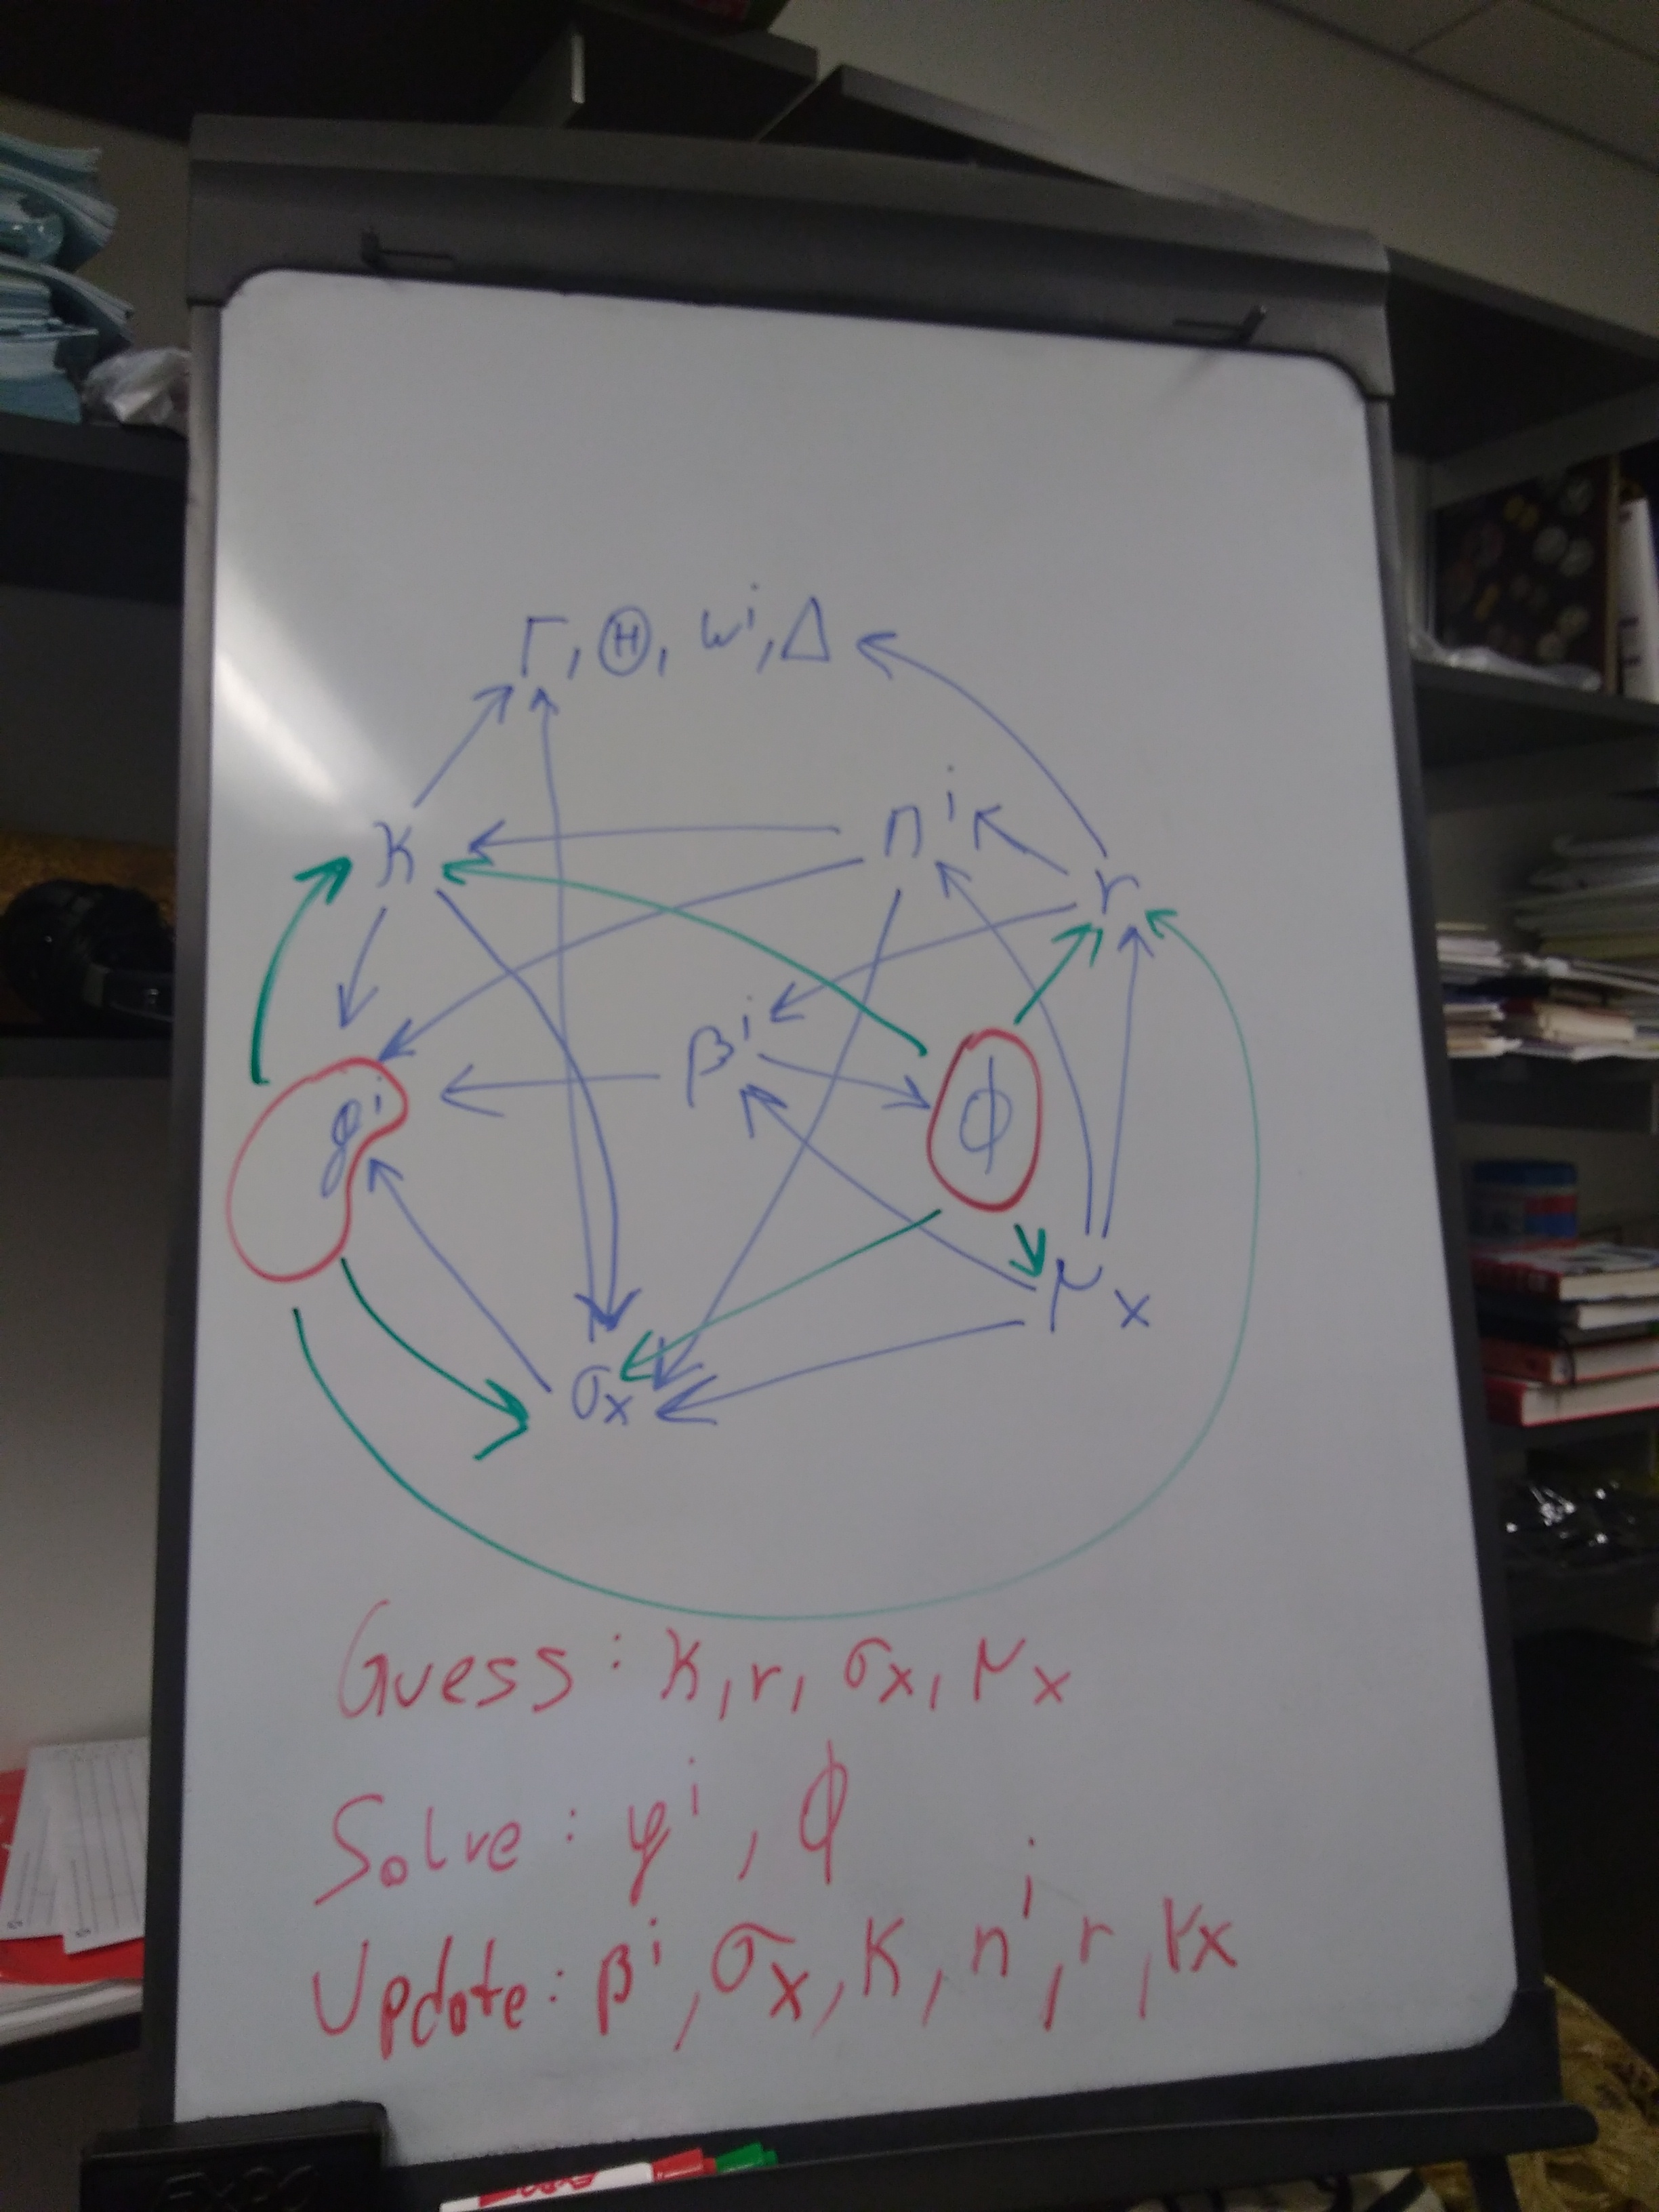 Γ, Θ, ωⁱ, Δ
κ
nⁱ
r
βⁱ
φⁱ
ϕ
μx
σx
Guess: κ, r, σx, μx
Solve: φⁱ, ϕ
Update: βⁱ, σx, κ, nⁱ, r, μx
EXPO